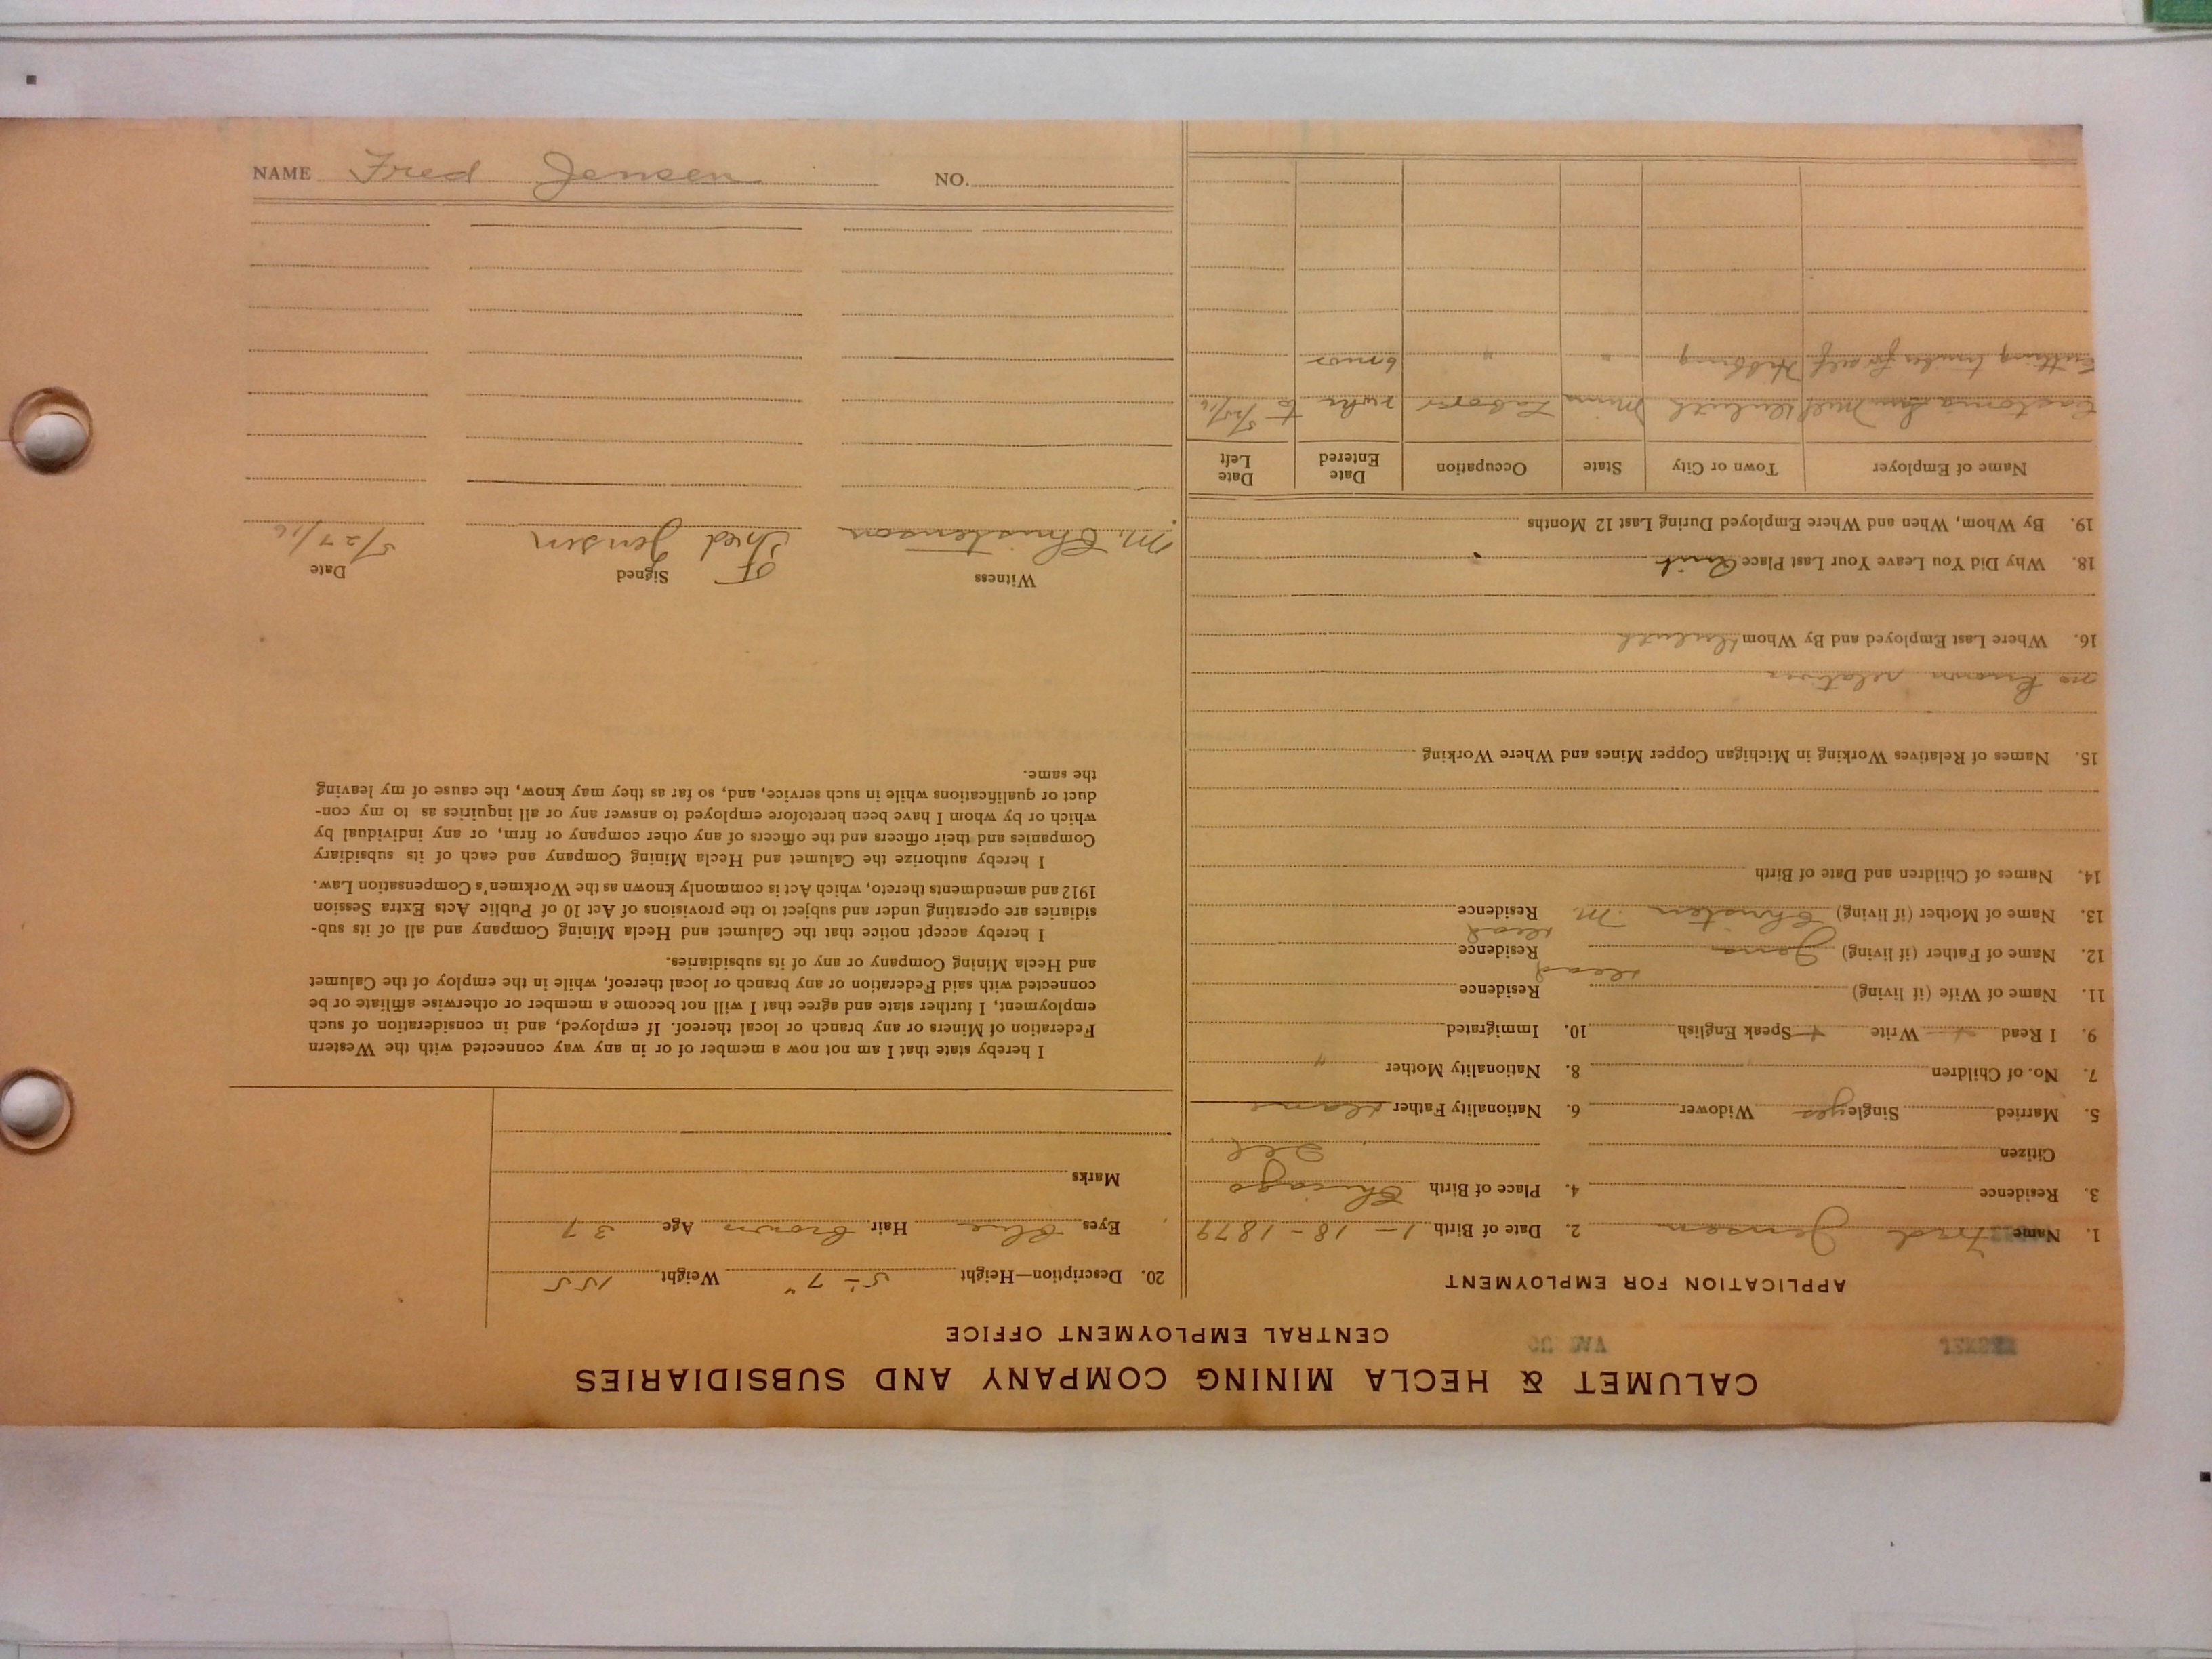 CALUMET & HECLA MINING COMPANY AND SUBSIDIARIES
CENTRAL EMPLOYMENT OFFICE
APPLICATION FOR EMPLOYMENT
1. Name Fred Jensen 2. Date of Birth 1-18-1879
3. Residence 4. Place of Birth Chicago
Citizen Ill
5. Married Single yes Widower 6. Nationality Father Dane
7. No. of Children 8. Nationality Mother "
9. I Read + Write + Speak English 10. Immigrated
11. Name of Wife (if living) Residence
12. Name of Father (if living) Jens Residence dead
13. Name of Mother (if living) Christen M. Residence dead
14. Names of Children and Date of Birth
15. Names of Relatives Working in Michigan Copper Mines and Where Working
no known relatives
16. Where Last Employed and By Whom Duluth
18. Why Did You Leave Your Last Place Quit
19. By Whom, When and Where Employed During Last 12 Months
Name of Employer Town or City State Occupation Date Entered Date Left
Mill Duluth Minn Laborer 2 wks to 5/25/16
Cutting timber for self Hibbing " " 6 mos
20. Description—Height 5'-7" Weight 155
Eyes Blue Hair Brown Age 37
Marks
I hereby state that I am not now a member of or in any way connected with the Western
Federation of Miners or any branch or local thereof. If employed, and in consideration of such
employment, I further state and agree that I will not become a member or otherwise affiliate or be
connected with said Federation or any branch or local thereof, while in the employ of the Calumet
and Hecla Mining Company or any of its subsidiaries.
I hereby accept notice that the Calumet and Hecla Mining Company and all of its sub-
sidiaries are operating under and subject to the provisions of Act 10 of Public Acts Extra Session
1912 and amendments thereto, which Act is commonly known as the Workmen's Compensation Law.
I hereby authorize the Calumet and Hecla Mining Company and each of its subsidiary
Companies and their officers and the officers of any other company or firm, or any individual by
which or by whom I have been heretofore employed to answer any or all inquiries as to my con-
duct or qualifications while in such service, and, so far as they may know, the cause of my leaving
the same.
Witness Signed Date
M. Christenson Fred Jensen 5/27/16
NAME Fred Jensen NO.